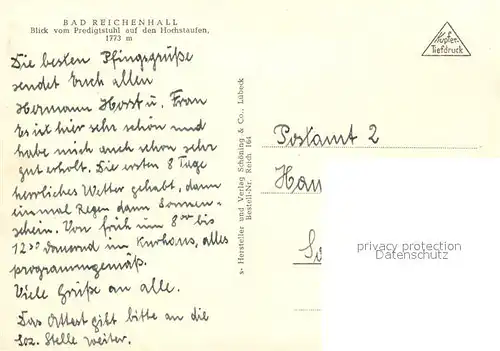 BAD REICHENHALL
Blick vom Predigtstuhl auf den Hochstaufen,
1773 m
Die besten Pfingsgrüße
sendet Euch allen
Hermann Horst u. Frau
Es ist hier sehr schön und
habe mich auch schon sehr
gut erholt. Die ersten 8 Tage
herrliches Wetter gehabt, dann
einmal Regen dann Sonnen-
schein. Von früh um 8⁰⁰ bis
12³⁰ dauernd im Kurhaus, alles
programmgemäß.
Viele Grüße an alle.
Das Attest gibt bitte an die
Soz. Stelle weiter.
Hersteller und Verlag Schöning & Co., Lübeck
Bestell-Nr. Reich 164
Kupfer-
Tiefdruck
Postamt 2
Han
privacy protection
for AK-Ansichtskarten.de